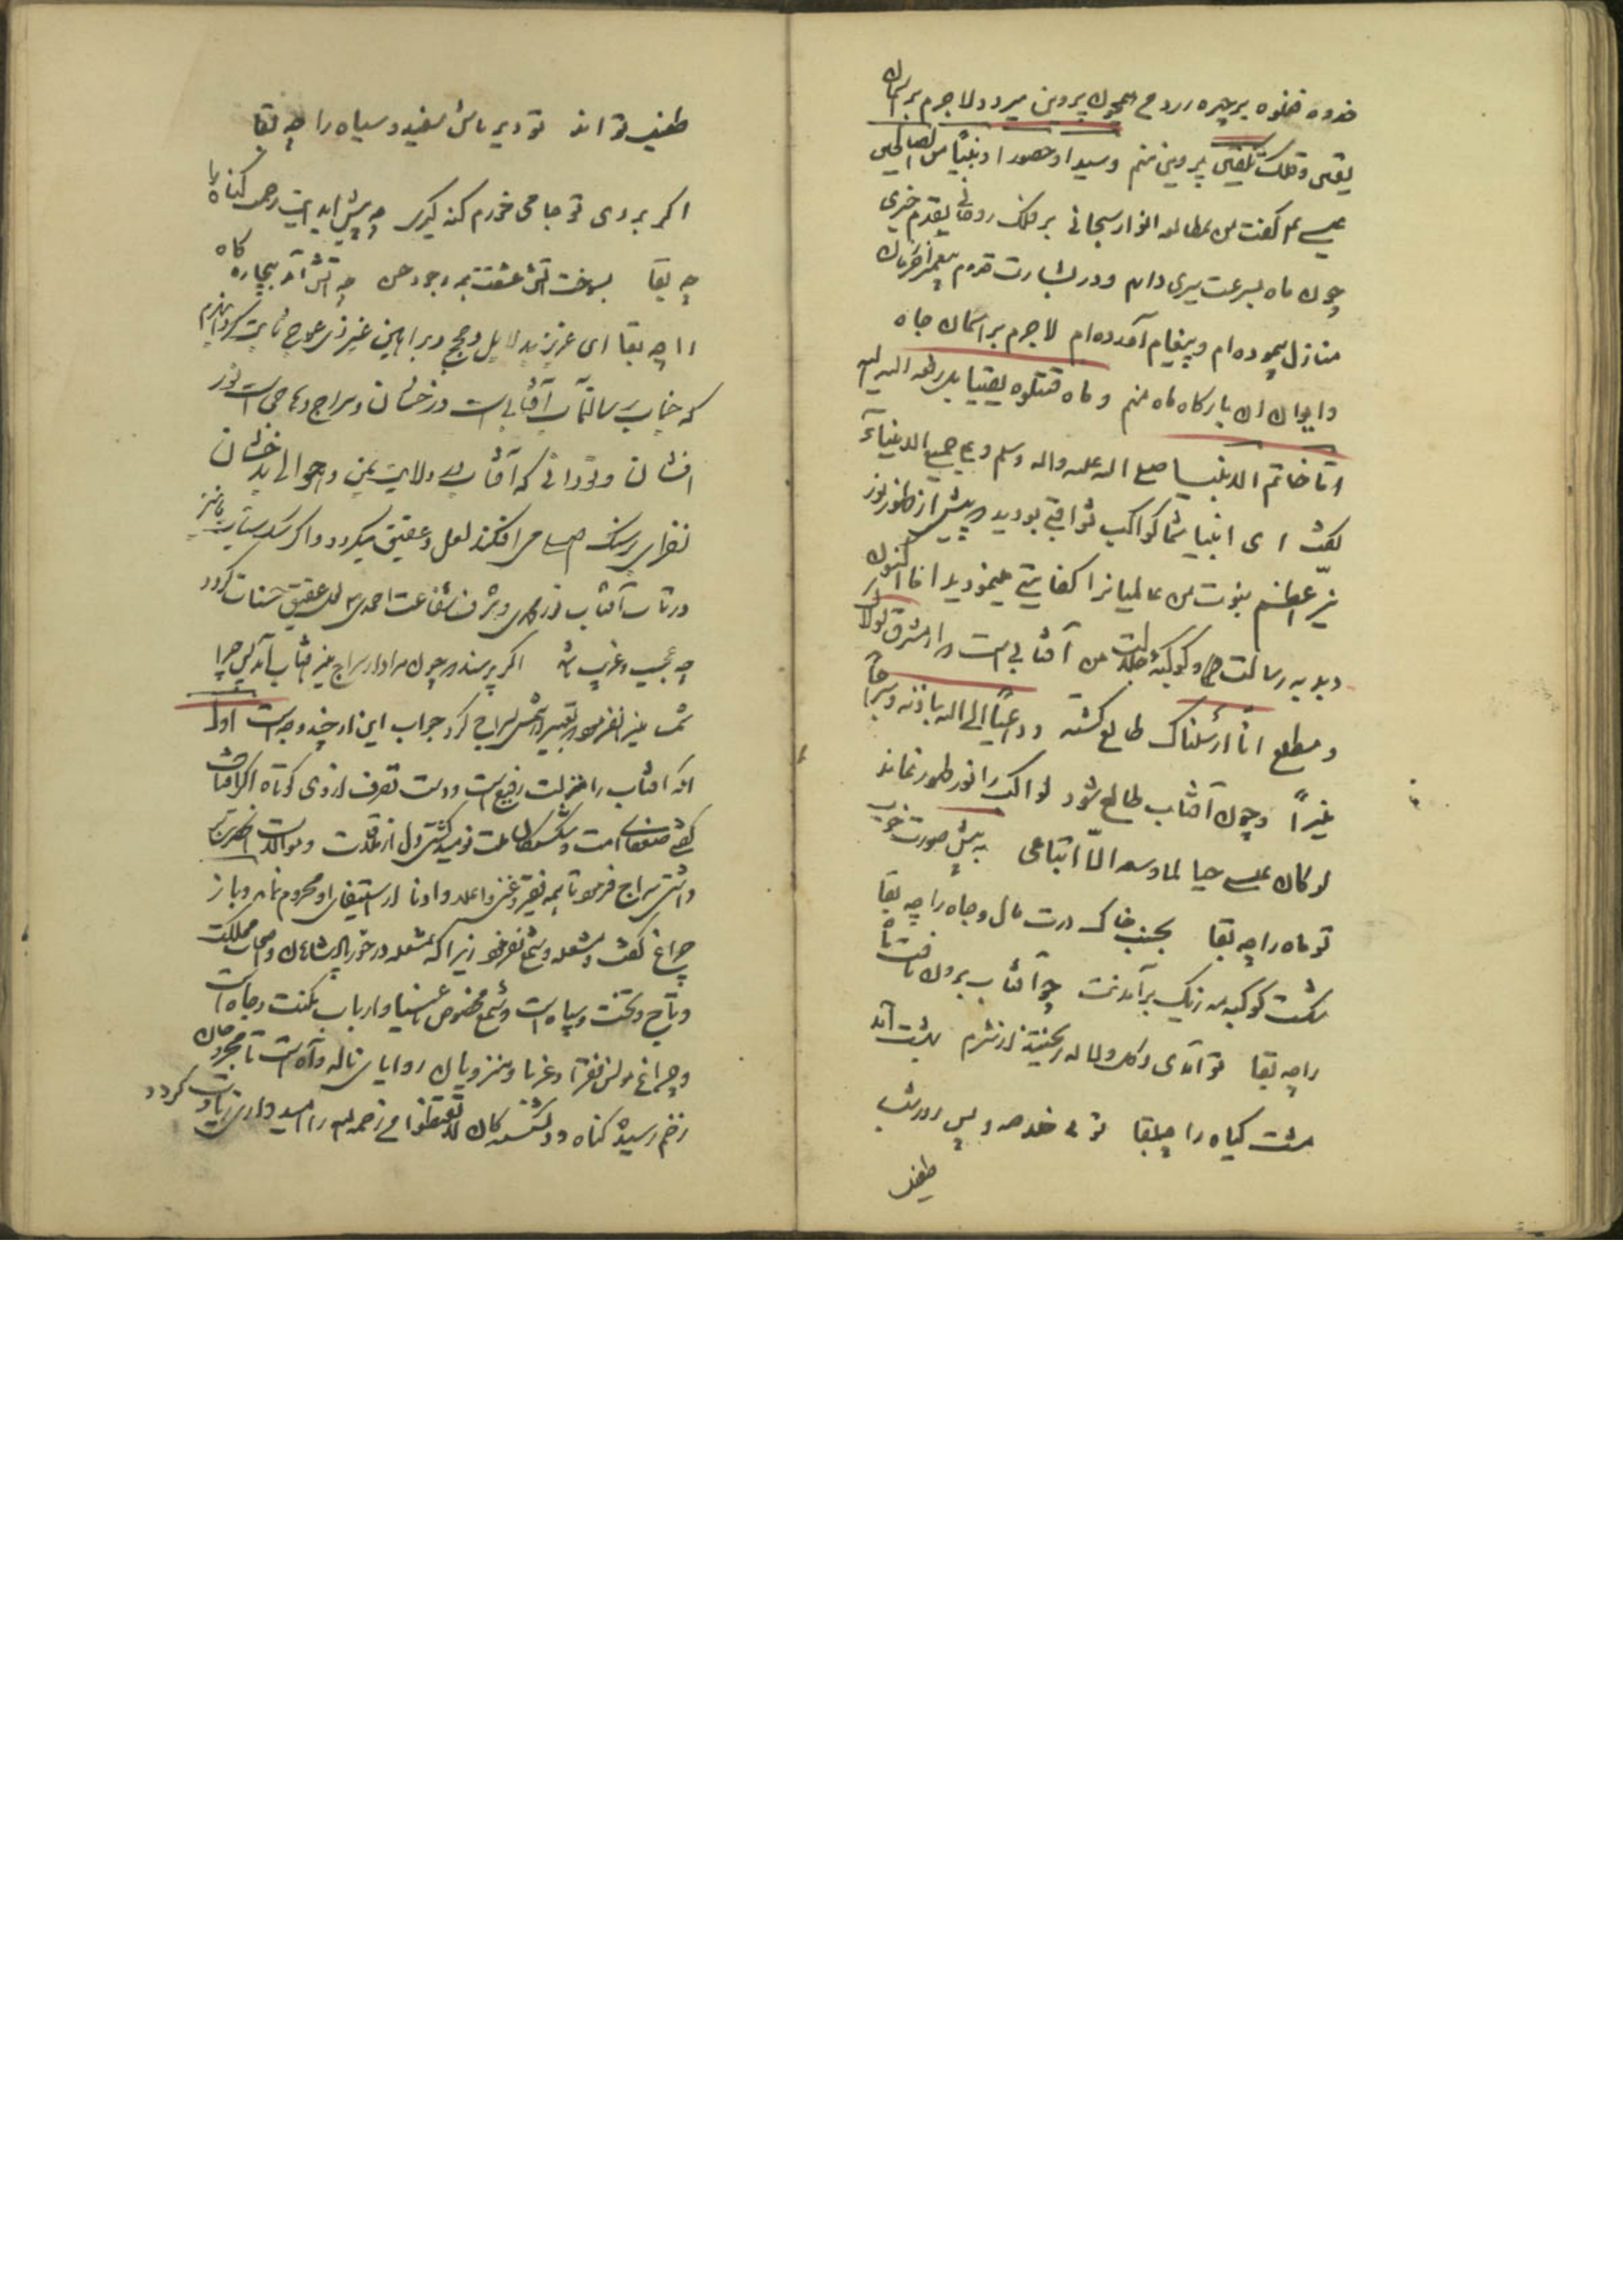 خذوه فغلوه بر چهره زرد می همچون پروین میرود لاجرم بر آسمان
یقین و فلک تلقین پروین منم و سیدا و حصورا و نبیاً من الصالحین
عیسی ع م گفت من بمطالعه انوار سبحانی بر فلک روحانی بقدم خبری
چون ماه بسرعت سیری دارم و در بشارت قدوم پیغمبر آخر زمان
منازل پیموده ام و پیغام آورده ام لاجرم بر آسمان جاه
و ایوان آن بارگاه ماه منم و ما قتلوه یقینا بل رفعه الله الیه
اما خاتم الانبیا صلی الله علیه واله وسلم و علی جمیع الانبیاء
گفت ای انبیا شما کواکب ثواقبی بودید پیش از ظهور نور
نیّر اعظم نبوت من عالمیانرا کفایتی مینمودید اما اکنون
دبدبه رسالت و کوکبهٔ جلالت من آفتابی است از مشرق لولاک
و مطلع انّا ارسلناک طالع گشته و داعیاً الی الله باذنه و سراجاً
منیراً و چون آفتاب طالع شود کواکب را نور ظهور نماند
لو کان عیسی حیا لما وسعه الّا اتباعی به پیش صورت خوب
تو ماه را چه بقا بجنب خاک درت مال و جاه را چه بقا
شکست کوکبه مه زنگ برآمدنت چو آفتاب برون تافت شاه
را چه بقا تو آمدی و گل و لاله ریختند از شرم بهشت آمد
مشت گیاه را چه بقا توئی خلاصه و پس روزت
طفیل
طفیل تو اند تو دیر باش سفید و سیاه را چه بقا
اگر بروی تو جامی خورم گنه گیرد چه پیش آید امیدت رحمت گناه را
چه بقا بسوخت آتش عشقت همه وجود حسن چه آتش آمد بیچاره کاه
را چه بقا ای عزیز بدلایل و حجج و براهین غیر ذی عوج ثابت گردانیدم
که جناب رسالتمآب آفتابی است درخشان و سراج وهاجی است نور
افشان و تو دانی که آفتاب در ولایت یمن و حوالی بدخشان
نظر بر سنگ می افکند لعل و عقیق میگردد و اگر سنگ سیئات ما نیز
در تاب آفتاب نور محمدی و شرف شفاعت احمدی لعل و عقیق حسنات گردد
چه عجیب و غریب باشد اگر پرسند که چون مراد از سراج منیر آفتاب آمد پس چرا
شمسا منیرا نفرمود و تعبیر از شمس بسراج کرد جواب این از چند وجه است اول
آنکه آفتاب را منزلت رفیع است و دست تصرف از وی کوتاه اگر آفتاب
گفتی ضعفای امت و شکستگان ملت نومید گشتی دل از
داشتی سراج فرمود تا همه فقیر و غنی و اعلا و ادنا از استیفای او محروم نماند و باز
چراغ گفت و مشعله و شمع نفرمود زیرا که مشعله در خور پادشاهان و صاحب مملکت
و تاج و تخت و سپاه است و شمع مخصوص اغنیا و ارباب مکنت و جاه است
و چراغ مونس فقرا و غربا و منزویان زوایای ناله و آه است تا مجروحان
زخم رسیده گناه و دلشکستگان لا تقنطوا من رحمة الله را امیدواری زیادت گردد